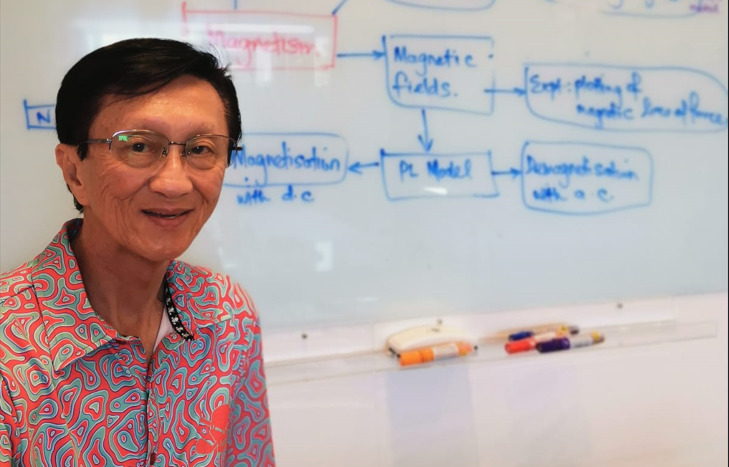 Magnetism
Magnetic
fields.
Expt: plotting of
magnetic lines of force
N
Magnetisation
with d.c
PL Model
Demagnetisation
with a.c.